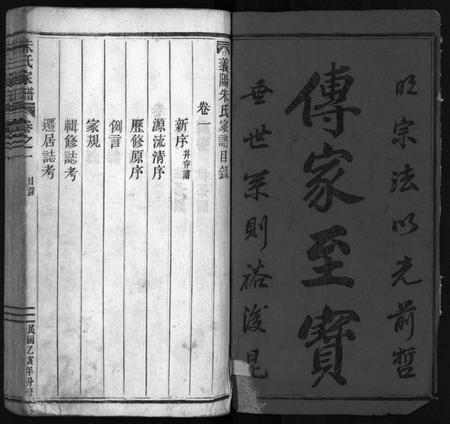 明宗法以光前哲
傳家至寶
垂世系則裕後昆
義陽朱氏家譜目錄
卷一
新序 并存譜
源流清序
歷修原序
例言
家規
輯修誌考
遷居誌考
朱氏家譜 卷之一 目錄 民國乙亥年